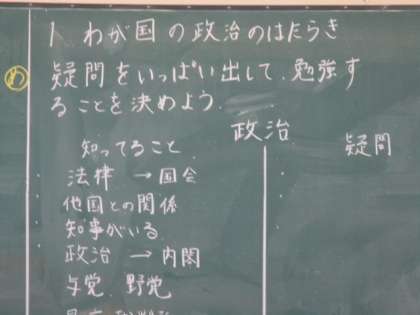 1 わが国の政治のはたらき
め 疑問をいっぱい出して、勉強す
ることを決めよう。
政治
知ってること
疑問
法律 → 国会
他国との関係
知事がいる
政治 → 内閣
与党、野党